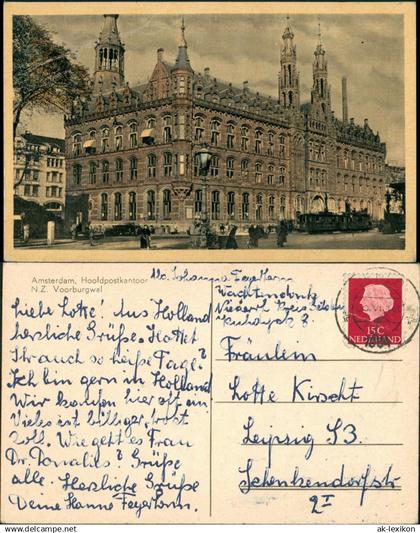 Amsterdam, Hoofdpostkantoor
N.Z. Voorburgwal
Liebe Lotte! Aus Holland
herzliche Grüße. Hattet
Ihr auch so heiße Tage?
Ich bin gern in Holland
Wir kaufen hier oft ein
Vieles ist billiger, trotz
Zoll. Wie geht es Frau
Dr. Donalies? Grüße
alle. Herzliche Grüße
Deine Hanne Feyerherm.
Abs. Johanna Feyerherm
Niederrh. Kreis
15 C
NEDERLAND
Fräulein
Lotte Kirscht
Leipzig S3.
Schenkendorfstr
2 I
www.ansichtskarten-lexikon.de
ak-lexikon